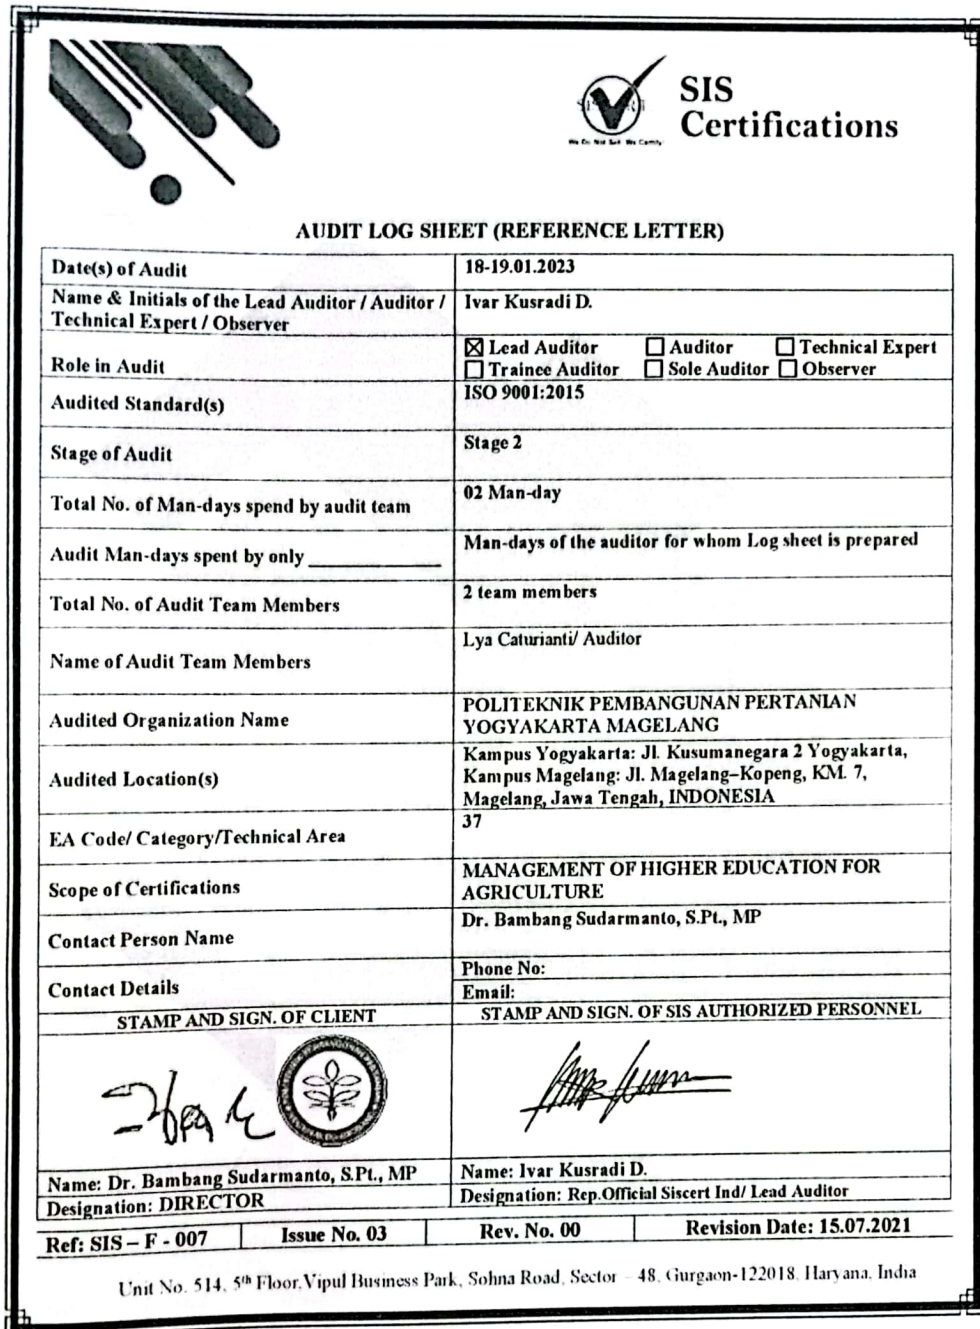 SIS
Certifications
We Do Not Sell We Certify
AUDIT LOG SHEET (REFERENCE LETTER)
Date(s) of Audit
18-19.01.2023
Name & Initials of the Lead Auditor / Auditor /
Technical Expert / Observer
Ivar Kusradi D.
Role in Audit
☒ Lead Auditor ☐ Auditor ☐ Technical Expert
☐ Trainee Auditor ☐ Sole Auditor ☐ Observer
Audited Standard(s)
ISO 9001:2015
Stage of Audit
Stage 2
Total No. of Man-days spend by audit team
02 Man-day
Audit Man-days spent by only ____________
Man-days of the auditor for whom Log sheet is prepared
Total No. of Audit Team Members
2 team members
Name of Audit Team Members
Lya Caturianti/ Auditor
Audited Organization Name
POLITEKNIK PEMBANGUNAN PERTANIAN
YOGYAKARTA MAGELANG
Audited Location(s)
Kampus Yogyakarta: Jl. Kusumanegara 2 Yogyakarta,
Kampus Magelang: Jl. Magelang–Kopeng, KM. 7,
Magelang, Jawa Tengah, INDONESIA
EA Code/ Category/Technical Area
37
Scope of Certifications
MANAGEMENT OF HIGHER EDUCATION FOR
AGRICULTURE
Contact Person Name
Dr. Bambang Sudarmanto, S.Pt., MP
Contact Details
Phone No:
Email:
STAMP AND SIGN. OF CLIENT
STAMP AND SIGN. OF SIS AUTHORIZED PERSONNEL
Name: Dr. Bambang Sudarmanto, S.Pt., MP
Name: Ivar Kusradi D.
Designation: DIRECTOR
Designation: Rep.Official Siscert Ind/ Lead Auditor
Ref: SIS – F - 007
Issue No. 03
Rev. No. 00
Revision Date: 15.07.2021
Unit No. 514, 5th Floor,Vipul Business Park, Sohna Road, Sector – 48, Gurgaon-122018, Haryana, India